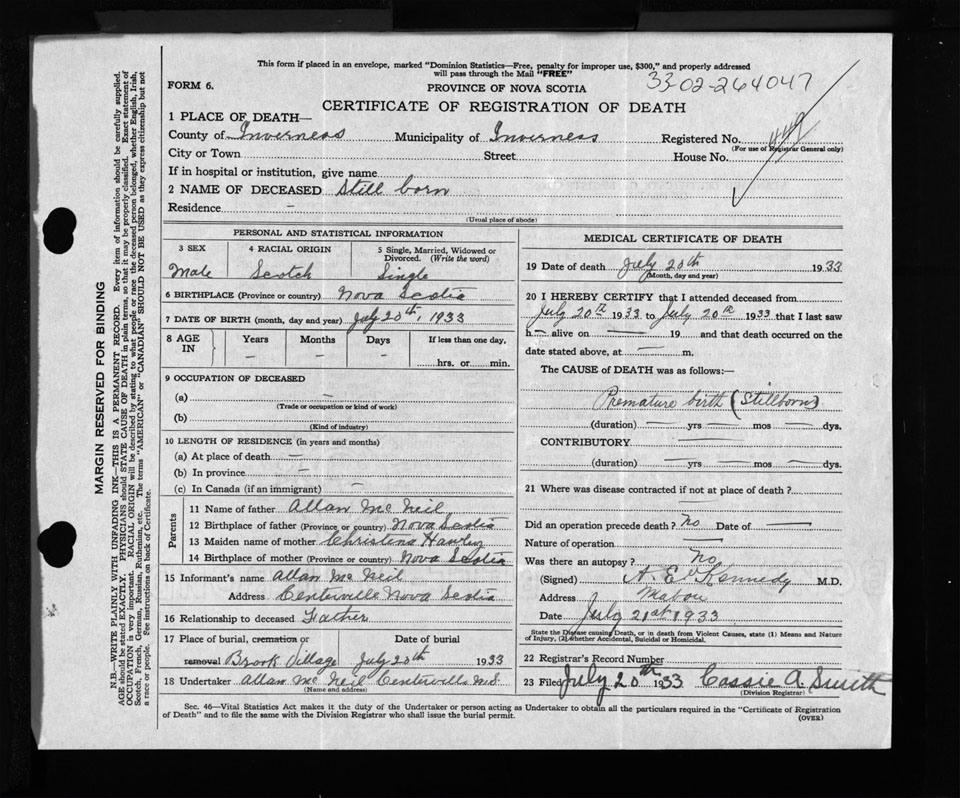 This form if placed in an envelope, marked "Dominion Statistics—Free, penalty for improper use, $300," and properly addressed
will pass through the Mail "FREE"
33-02-264047
FORM 6.
PROVINCE OF NOVA SCOTIA
CERTIFICATE OF REGISTRATION OF DEATH
1 PLACE OF DEATH—
County of Inverness Municipality of Inverness Registered No.
(For use of Registrar General only)
City or Town Street House No.
If in hospital or institution, give name
2 NAME OF DECEASED Still born
Residence —
(Usual place of abode)
PERSONAL AND STATISTICAL INFORMATION
3 SEX 4 RACIAL ORIGIN 5 Single, Married, Widowed or
Divorced. (Write the word)
Male Scotch Single
6 BIRTHPLACE (Province or country) Nova Scotia
7 DATE OF BIRTH (month, day and year) July 20th, 1933
8 AGE IN Years Months Days If less than one day,
— — — hrs. or min.
9 OCCUPATION OF DECEASED
(a) —
(Trade or occupation or kind of work)
(b)
(Kind of industry)
10 LENGTH OF RESIDENCE (in years and months)
(a) At place of death —
(b) In province —
(c) In Canada (if an immigrant) —
Parents
11 Name of father Allan Mc Neil
12 Birthplace of father (Province or country) Nova Scotia
13 Maiden name of mother Christena
14 Birthplace of mother (Province or country) Nova Scotia
15 Informant's name Allan Mc Neil
Address Centerville Nova Scotia
16 Relationship to deceased Father
17 Place of burial, cremation or Date of burial
removal Brook Village July 20th 1933
18 Undertaker Allan Mc Neil Centerville N.S.
(Name and address)
MEDICAL CERTIFICATE OF DEATH
19 Date of death July 20th 1933
(Month, day and year)
20 I HEREBY CERTIFY that I attended deceased from
July 20th 1933 to July 20th 1933 that I last saw
h— alive on — 19 and that death occurred on the
date stated above, at — m.
The CAUSE of DEATH was as follows:—
Premature birth (Stillborn)
(duration) — yrs — mos — dys.
CONTRIBUTORY —
(duration) — yrs — mos — dys.
21 Where was disease contracted if not at place of death? —
Did an operation precede death? No Date of —
Nature of operation —
Was there an autopsy? No
(Signed) A. E. Kennedy M.D.
Address Mabou
Date July 21st 1933
State the Disease causing Death, or in death from Violent Causes, state (1) Means and Nature
of Injury, (2) whether Accidental, Suicidal or Homicidal.
22 Registrar's Record Number
23 Filed July 20th 1933 Cassie A. Smith
(Division Registrar)
Sec. 46—Vital Statistics Act makes it the duty of the Undertaker or person acting as Undertaker to obtain all the particulars required in the "Certificate of Registration
of Death" and to file the same with the Division Registrar who shall issue the burial permit.
(OVER)
MARGIN RESERVED FOR BINDING
N.B.—WRITE PLAINLY WITH UNFADING INK—THIS IS A PERMANENT RECORD. Every item of information should be carefully supplied.
AGE should be stated EXACTLY. PHYSICIANS should STATE CAUSE OF DEATH in plain terms, so that it may be properly classified. Exact statement of
OCCUPATION is very important. RACIAL ORIGIN will be described by stating to what people or race the deceased person belonged, whether English, Irish,
Scotch, French, German, Russian, Ruthenian, etc. The terms "AMERICAN" or "CANADIAN" SHOULD NOT BE USED as they express citizenship but not
a race or people. See instructions on back of Certificate.